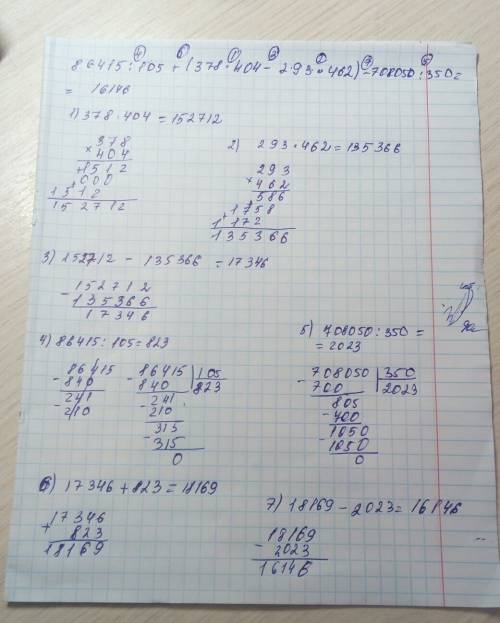 86415 : 105 + (378 · 404 - 293 · 462) - 708050 : 350 =
= 16146
1) 378 · 404 = 152712
378
× 404
1512
000
1512
152712
2) 293 · 462 = 135366
293
× 462
586
1758
1172
135366
3) 152712 - 135366 = 17346
- 152712
135366
17346
4) 86415 : 105 = 823
- 86415
840
- 241
210
- 86415 | 105
840 | 823
- 241
210
- 315
315
0
5) 708050 : 350 =
= 2023
- 708050 | 350
700 | 2023
805
- 700
1050
- 1050
0
6) 17346 + 823 = 18169
17346
+ 823
18169
7) 18169 - 2023 = 16146
18169
- 2023
16146